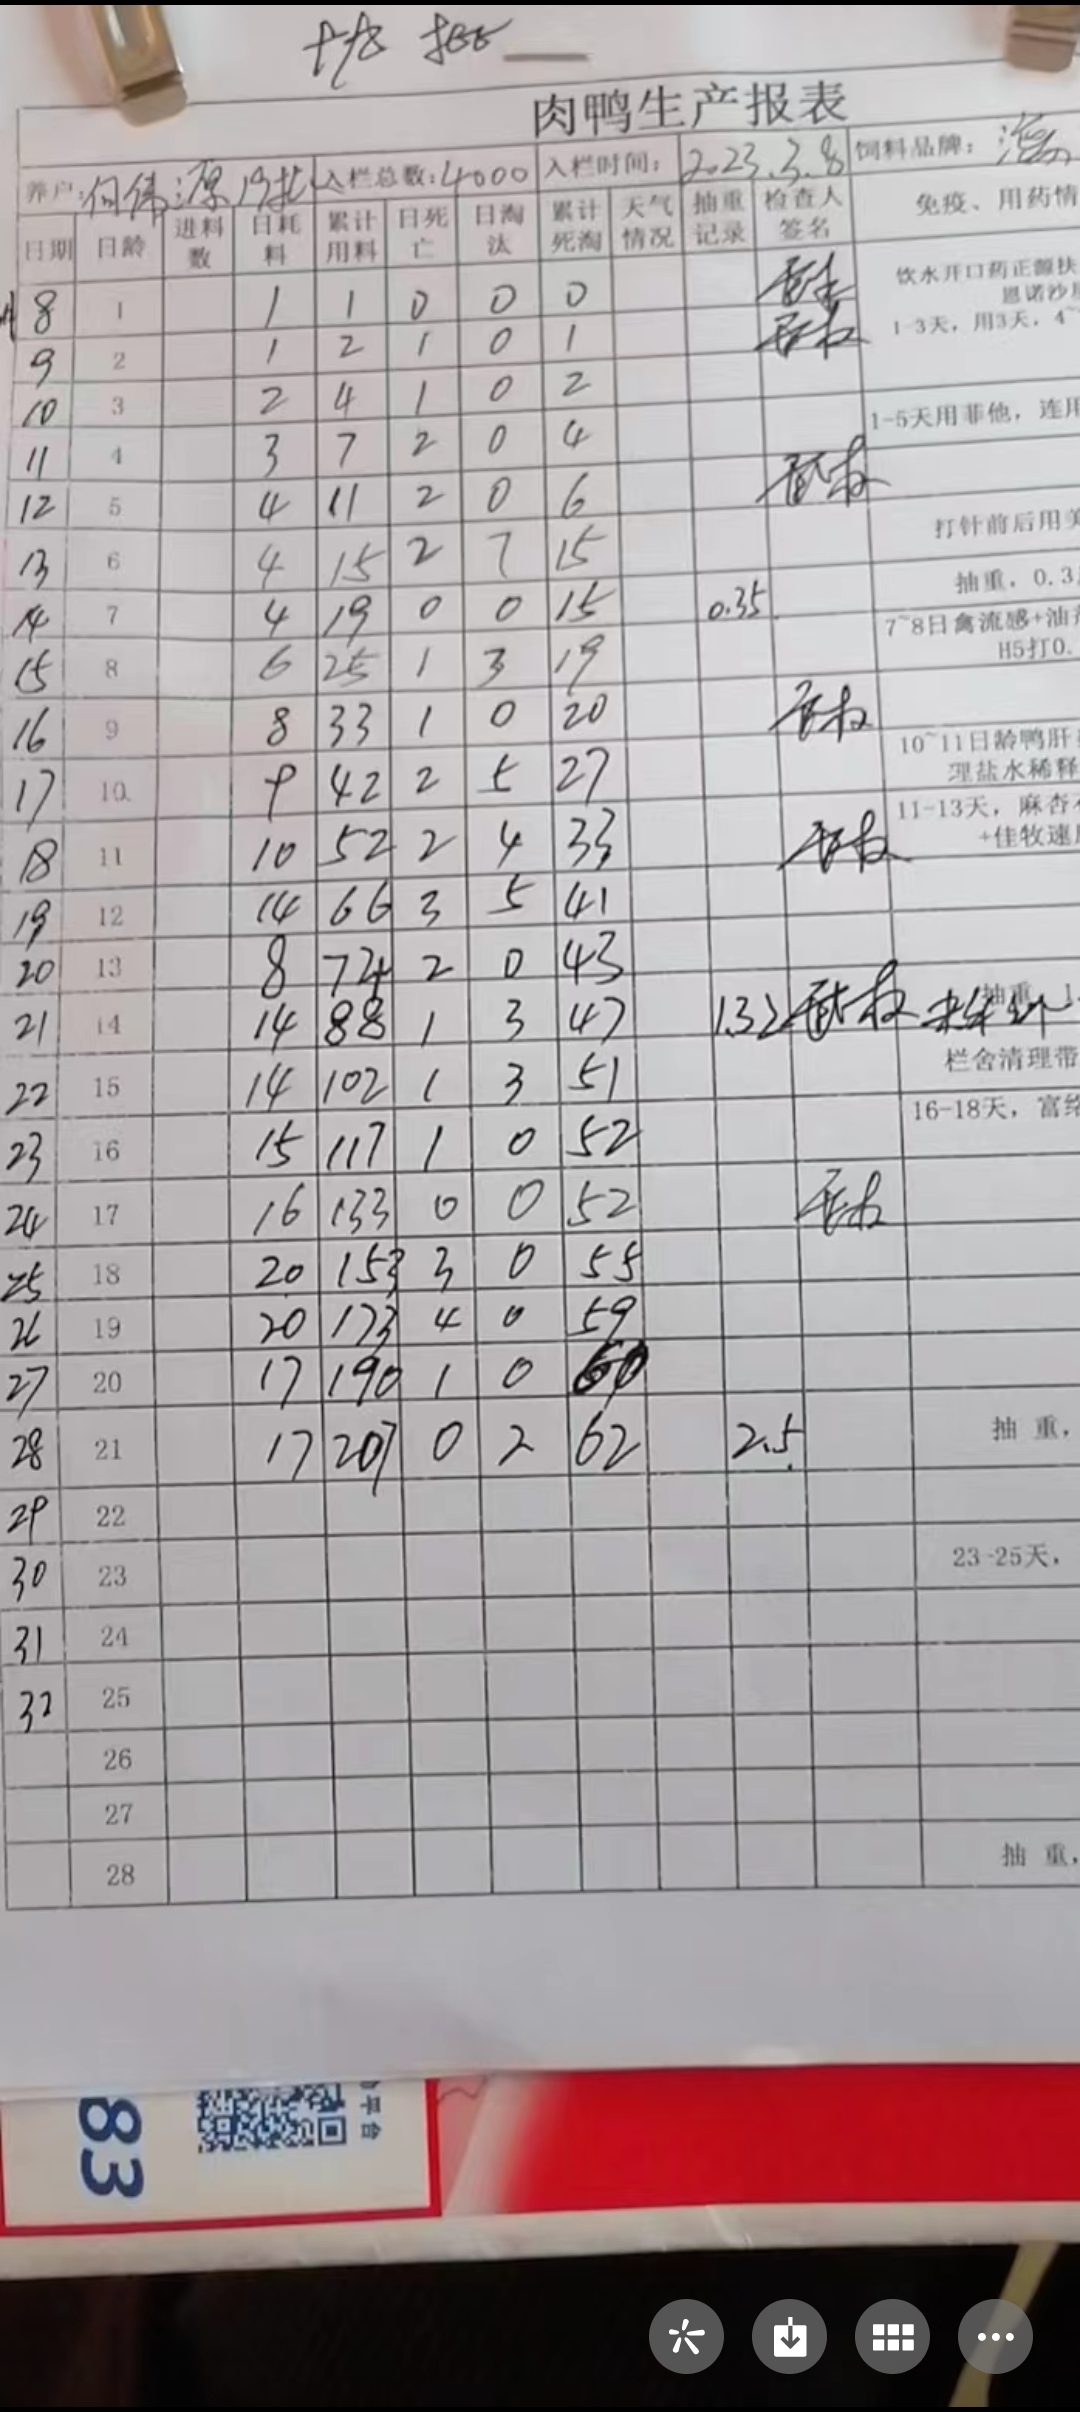 肉鸭生产报表
养户: 入栏总数:4000 入栏时间: 2023.3.8 饲料品牌:
日期 日龄 进料数 日耗料 累计用料 日死亡 日淘汰 累计死淘 天气情况 抽重记录 检查人签名 免疫、用药情
8 1 1 1 0 0 0 饮水开口药正源扶
恩诺沙星
9 2 1 2 1 0 1 1-3天，用3天，4~
10 3 2 4 1 0 2
1-5天用菲他，连用
11 4 3 7 2 0 4
12 5 4 11 2 0 6
打针前后用美
13 6 4 15 2 7 15
抽重，0.3
14 7 4 19 0 0 15 0.35
7~8日禽流感+油
H5打0.
15 8 6 25 1 3 19
16 9 8 33 1 0 20
10~11日龄鸭肝
理盐水稀释
17 10 9 42 2 5 27
11-13天，麻杏石
+佳牧速
18 11 10 52 2 4 33
19 12 14 66 3 5 41
20 13 8 74 2 0 43
抽重，1.
21 14 14 88 1 3 47 1.32
栏舍清理带
22 15 14 102 1 3 51
16-18天，富络
23 16 15 117 1 0 52
24 17 16 133 0 0 52
25 18 20 153 3 0 55
26 19 20 173 4 0 59
27 20 17 190 1 0 60
28 21 17 207 0 2 62 2.5 抽 重，
29 22
30 23 23-25天，
31 24
32 25
26
27
28 抽 重，
83
平台